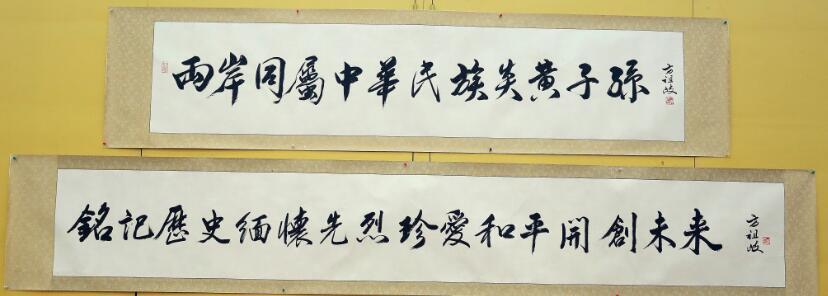 兩岸同屬中華民族炎黃子孫
方祖岐
銘記歷史緬懷先烈珍愛和平開創未来
方祖岐